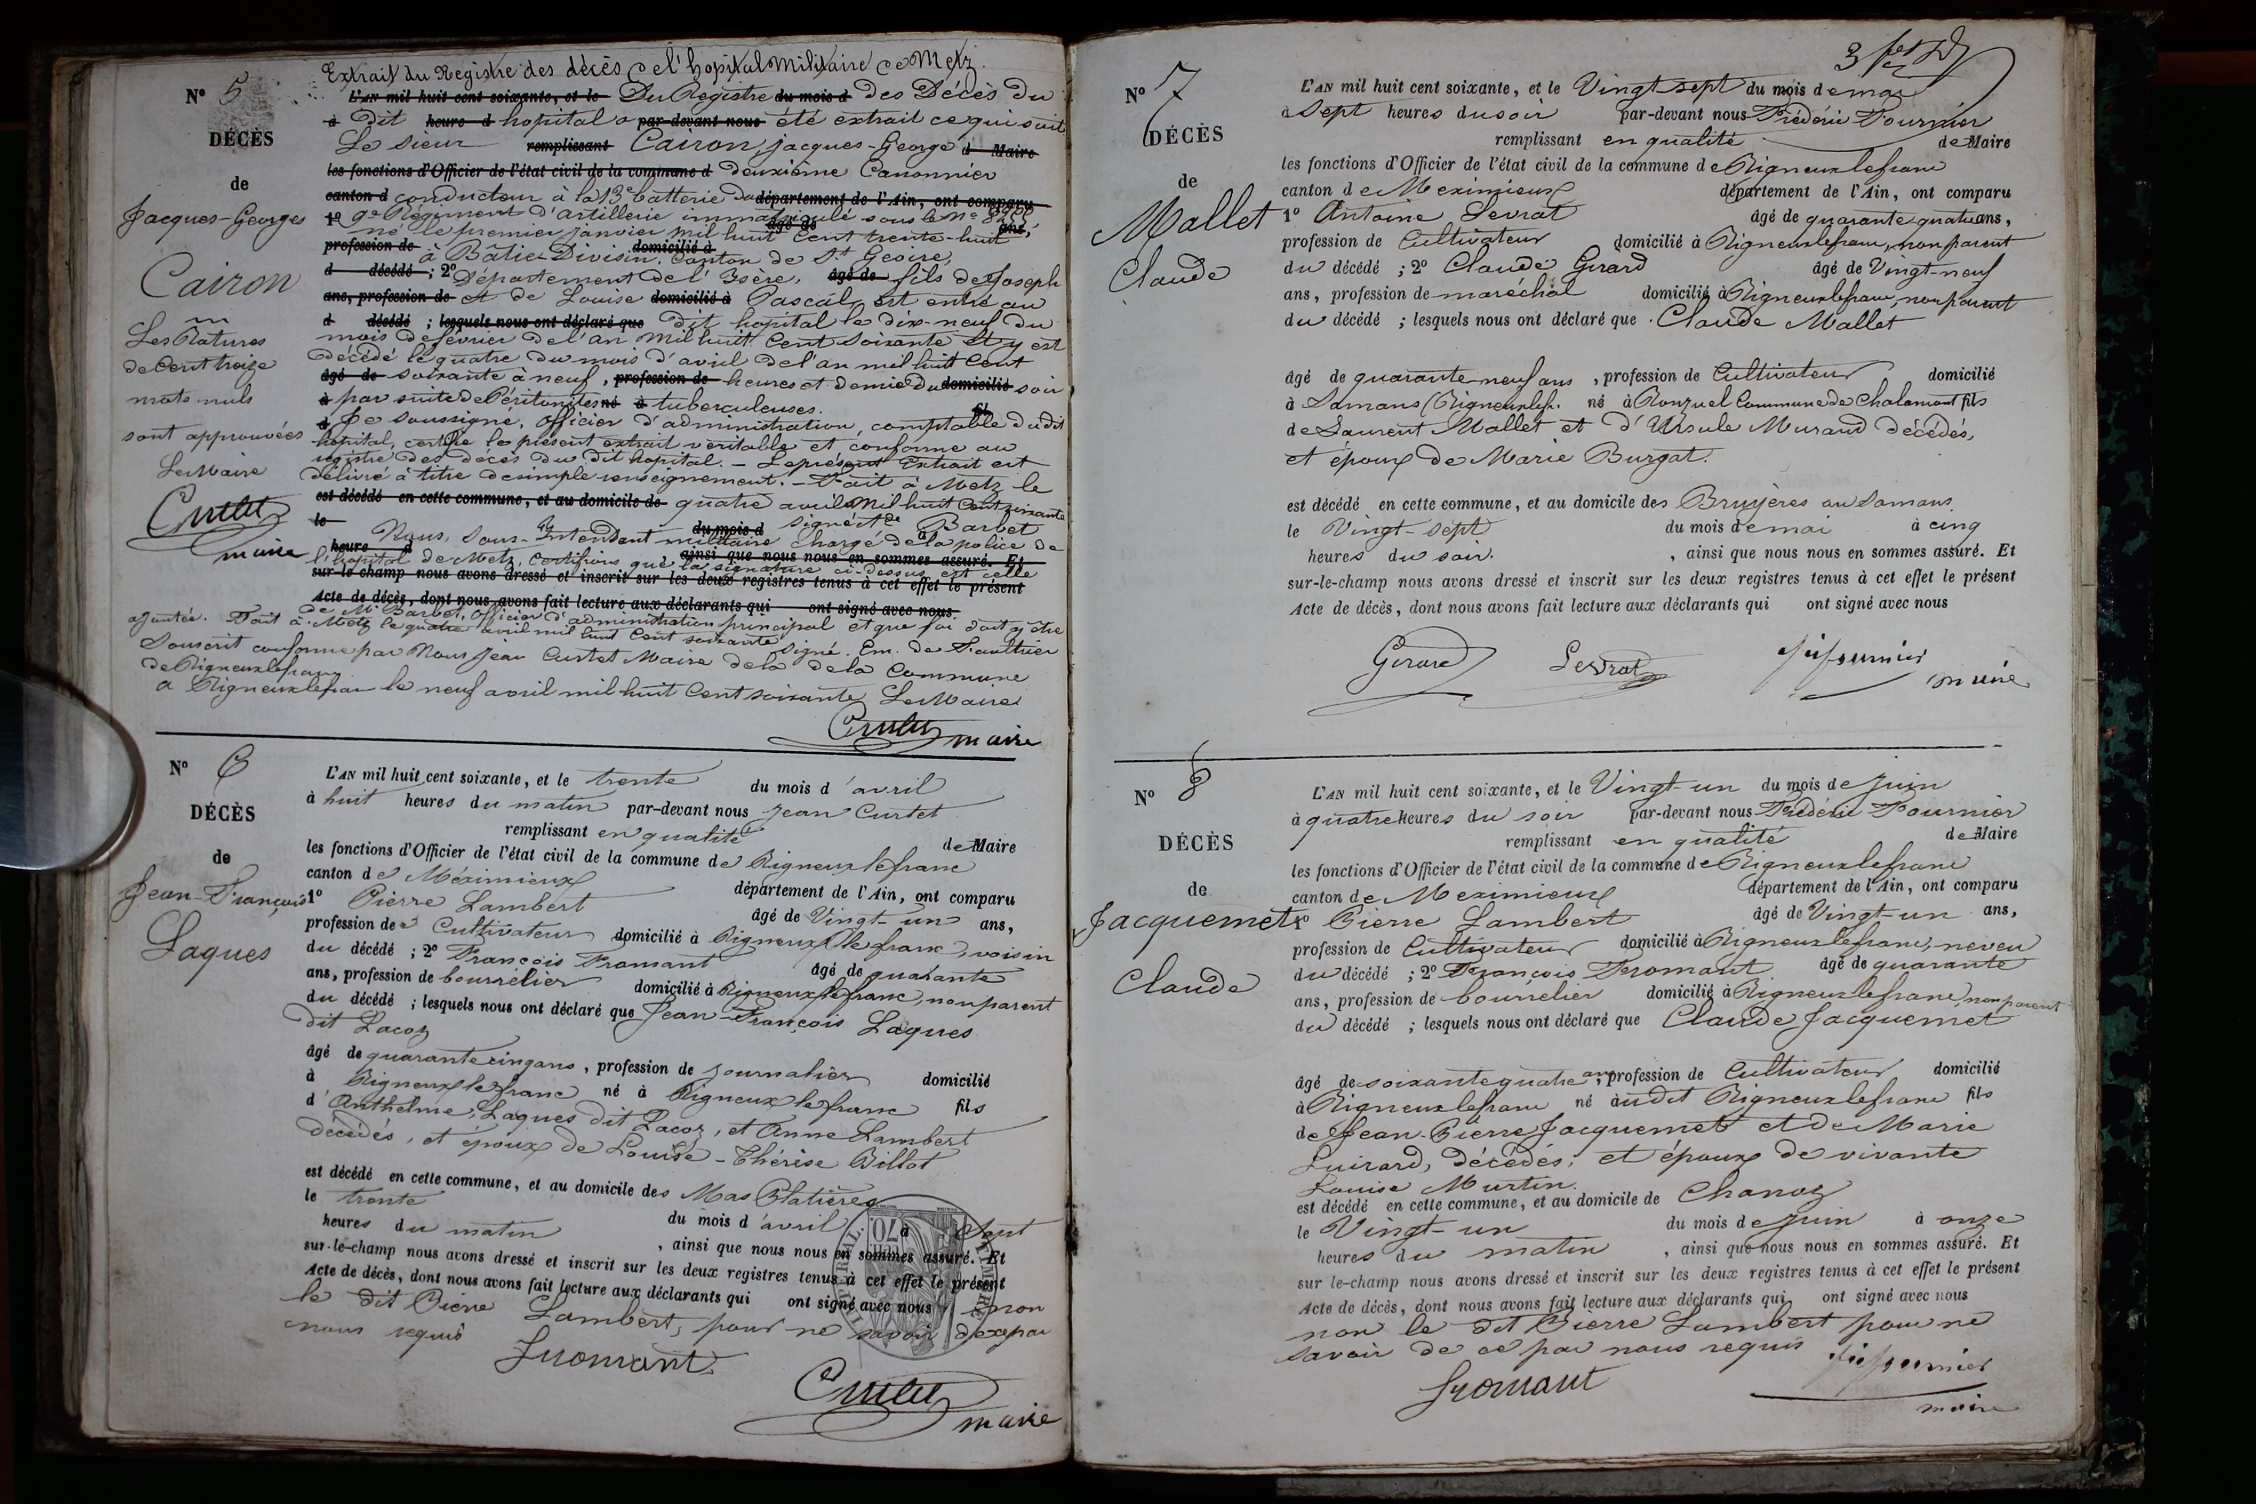 Extrait du Registre des décès de l'hopital Militaire de Metz.
N° 5
L'AN mil huit cent soixante, et le Du Registre du mois d des Décès du
à Dit heure d hopital a par-devant nous été extrait ce qui suit
DÉCÈS
Le Sieur remplissant Cairon, Jacques-George d Maire
les fonctions d'Officier de l'état civil de la commune d deuxième Canonnier
de
canton d conducteur à la 13e batterie du département de l'Ain, ont comparu
Jacques-Georges
1° 9e Régiment d'artillerie immatriculé sous le n°
âgé de ans,
né le premier janvier mil huit cent trente-huit
profession de à Bâtie-Divisin, domicilié à Canton de St Geoire,
Cairon
d décédé ; 2° Département de l'Isère, âgé de fils de Joseph
ans, profession de et de Louise domicilié à Pascal, est entré au
d décédé ; lesquels nous ont déclaré que dit hopital le dix-neuf du
Les Ratures
mois de février de l'an mil huit cent soixante et y est
de cent treize
décédé le quatre du mois d'avril de l'an mil huit cent
âgé de soixante à neuf, profession de heures et demie du domicilié soir
mots nuls
à par suite de Péritonites né à tuberculeuses.
sont approuvées
d Je soussigné, officier d'administration, comptable dudit
hopital, certifie le présent extrait véritable et conforme au
Le Maire
registre des décès du dit hopital. - Le présent Extrait est
délivré à titre de simple renseignement. - Fait à Metz le
Curtet
est décédé en cette commune, et au domicile de quatre avril mil huit cent soixante
le du mois d signé Barbet
maire
Nous, Sous-Intendant militaire chargé de la police de
heure d ainsi que nous nous en sommes assuré. Et
l'hopital de Metz, certifions que la signature ci-dessus est celle
sur-le-champ nous avons dressé et inscrit sur les deux registres tenus à cet effet le présent
Acte de décès, dont nous avons fait lecture aux déclarants qui ont signé avec nous.
de Mr Barbet, Officier d'administration principal et que foi doit y être
ajoutée. Fait à Metz le quatre avril mil huit cent soixante signé. Em. de
Souscrit conforme par Nous Jean Curtet Maire de la de la Commune
de Rigneuxlefranc
a Rigneuxlefranc le neuf avril mil huit cent soixante Le Maire
Curtet
maire
N° 6
L'AN mil huit cent soixante, et le trente du mois d'avril
à huit heures du matin par-devant nous Jean Curtet
DÉCÈS
remplissant en qualité de Maire
les fonctions d'Officier de l'état civil de la commune de Rigneux le franc
de
canton de Méximieux département de l'Ain, ont comparu
Jean-François
1° Pierre Lambert âgé de Vingt un ans,
profession de Cultivateur domicilié à Rigneux le franc, voisin
Laques
du décédé ; 2° François Fromant âgé de quarante
ans, profession de bourrélier domicilié à Rigneux le franc, non parent
du décédé ; lesquels nous ont déclaré que Jean-François Laques
dit Lacoz
âgé de quarante cinq ans, profession de journalier domicilié
à Rigneux le franc né à Rigneux le franc fils
d'Anthelme, Laques dit Lacoz, et Anne Lambert
décédés, et époux de Louise-Thérèse Billot
est décédé en cette commune, et au domicile des Mas Platières
le trente du mois d'avril à Sept
heures du matin , ainsi que nous nous en sommes assuré. Et
sur-le-champ nous avons dressé et inscrit sur les deux registres tenus à cet effet le présent
Acte de décès, dont nous avons fait lecture aux déclarants qui ont signé avec nous, non
le dit Pierre Lambert, pour ne savoir de ce par
nous requis
Fromant
Curtet
maire
N° 7
L'AN mil huit cent soixante, et le Vingt sept du mois de mai
à Sept heures du soir par-devant nous Frédéric Fournier
DÉCÈS
remplissant en qualité de Maire
les fonctions d'Officier de l'état civil de la commune de Rigneuxlefranc
de
canton de Meximieux département de l'Ain, ont comparu
Mallet
1° Antoine Levrat âgé de quarante quatre ans,
profession de Cultivateur domicilié à Rigneuxlefranc, non parent
Claude
du décédé ; 2° Claude Gerard âgé de Vingt-neuf
ans, profession de maréchal domicilié à Rigneuxlefranc, non parent
du décédé ; lesquels nous ont déclaré que Claude Mallet
âgé de quarante neuf ans, profession de Cultivateur domicilié
à Samans (Rigneuxlefr. né à Ronzuel Commune de Chalamont fils
de Laurent Mallet et d'Ursule Muraud décédés,
et époux de Marie Burgat.
est décédé en cette commune, et au domicile des Bruyères au Samans
le Vingt-sept du mois de mai à cinq
heures du soir. , ainsi que nous nous en sommes assuré. Et
sur-le-champ nous avons dressé et inscrit sur les deux registres tenus à cet effet le présent
Acte de décès, dont nous avons fait lecture aux déclarants qui ont signé avec nous
Gerard Levrat fournier
maire
N° 8
L'AN mil huit cent soixante, et le Vingt-un du mois de juin
à quatre heures du soir par-devant nous Frédéric Fournier
DÉCÈS
remplissant en qualité de Maire
les fonctions d'Officier de l'état civil de la commune de Rigneuxlefranc
de
canton de Meximieux département de l'Ain, ont comparu
Jacquemet
1° Pierre Lambert âgé de Vingt-un ans,
profession de Cultivateur domicilié à Rigneuxlefranc, neveu
Claude
du décédé ; 2° François Fromant âgé de quarante
ans, profession de bourrelier domicilié à Rigneuxlefranc, non parent
du décédé ; lesquels nous ont déclaré que Claude Jacquemet
âgé de soixante quatre ans, profession de Cultivateur domicilié
à Rigneuxlefranc né audit Rigneuxlefranc fils
de Jean-Pierre Jacquemet et de Marie
Luirard, décédés; et époux de vivante
Louise Murtin.
est décédé en cette commune, et au domicile de Chanoz
le Vingt-un du mois de juin à onze
heures du matin , ainsi que nous nous en sommes assuré. Et
sur le-champ nous avons dressé et inscrit sur les deux registres tenus à cet effet le présent
Acte de décès, dont nous avons fait lecture aux déclarants qui ont signé avec nous
non le dit Pierre Lambert pour ne
savoir de ce par nous requis
Fromant fournier
maire